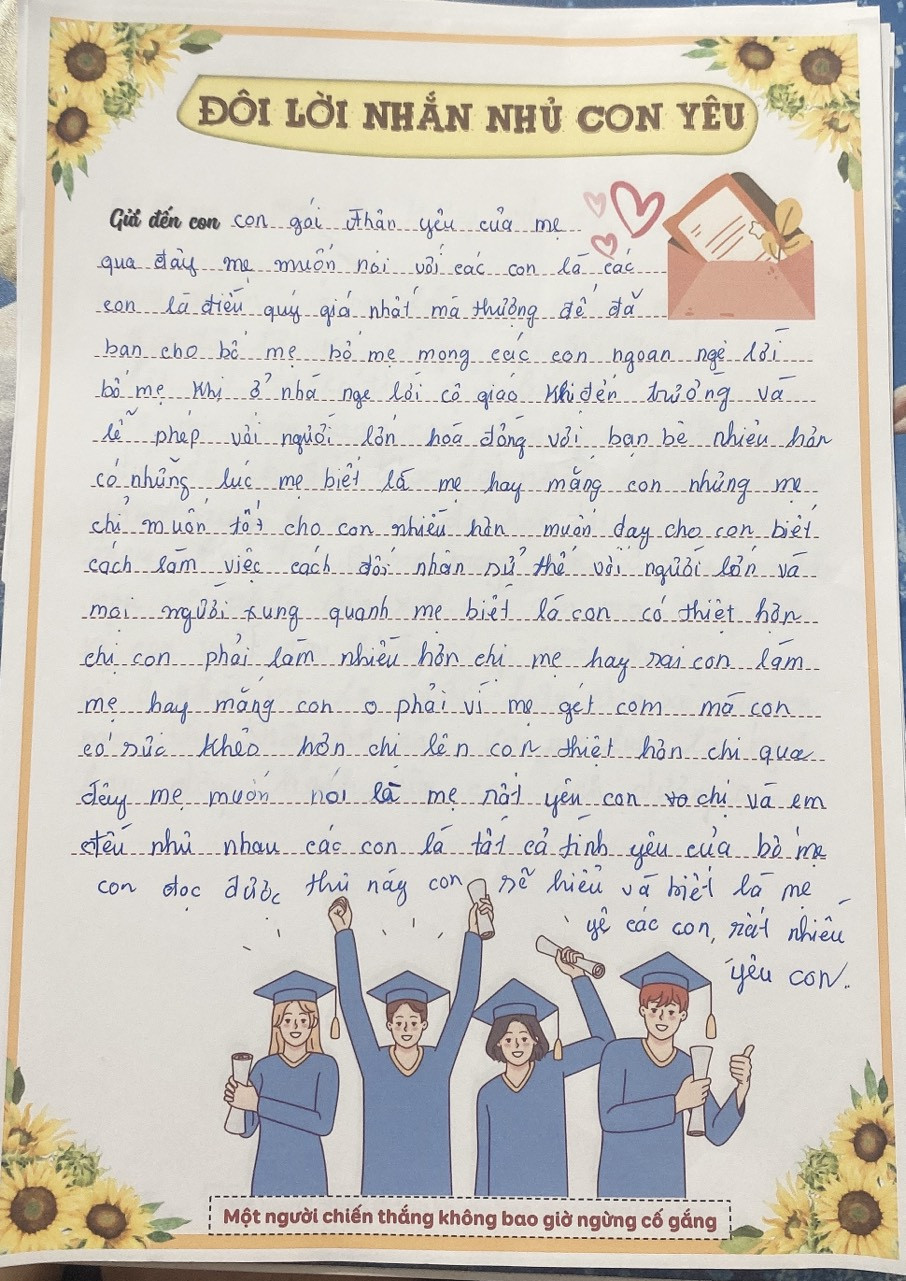 ĐÔI LỜI NHẮN NHỦ CON YÊU
Gửi đến con con gái thân yêu của mẹ
qua đây mẹ muốn nói với các con là các
con là điều quý giá nhất mà thượng đế đã
ban cho bố mẹ bố mẹ mong các con ngoan nge lời
bố mẹ khi ở nhà nge lời cô giáo khi đến trường và
lễ phép với người lớn hoà đồng với bạn bè nhiều hơn
có những lúc mẹ biết là mẹ hay mắng con nhưng mẹ
chỉ muốn tốt cho con nhiều hơn muốn dạy cho con biết
cách làm việc cách đối nhân sử thế với người lớn và
mọi người xung quanh mẹ biết là con có thiệt hơn
chị con phải làm nhiều hơn chị mẹ hay sai con làm
mẹ hay mắng con o phải vì mẹ gét com mà con
có sức khẻo hơn chị lên con thiệt hơn chị qua
đây mẹ muốn nói là mẹ rất yêu con chị và em
đều như nhau các con là tất cả tình yêu của bố mẹ
con đọc được thư này con sẽ hiểu và biết là mẹ
yê các con, rất nhiều
yêu con..
Một người chiến thắng không bao giờ ngừng cố gắng